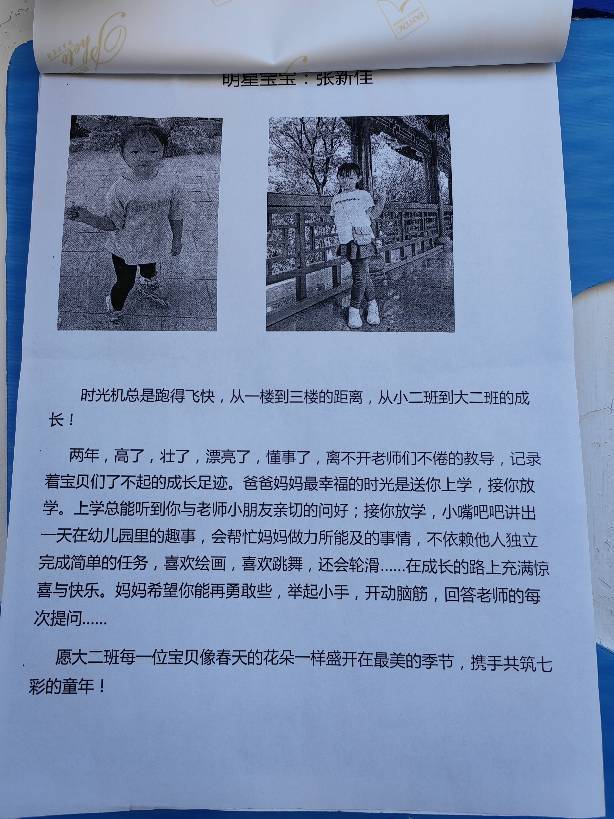 明星宝宝：张新佳
时光机总是跑得飞快，从一楼到三楼的距离，从小二班到大二班的成
长！
两年，高了，壮了，漂亮了，懂事了，离不开老师们不倦的教导，记录
着宝贝们了不起的成长足迹。爸爸妈妈最幸福的时光是送你上学，接你放
学。上学总能听到你与老师小朋友亲切的问好；接你放学，小嘴吧吧讲出
一天在幼儿园里的趣事，会帮忙妈妈做力所能及的事情，不依赖他人独立
完成简单的任务，喜欢绘画，喜欢跳舞，还会轮滑......在成长的路上充满惊
喜与快乐。妈妈希望你能再勇敢些，举起小手，开动脑筋，回答老师的每
次提问......
愿大二班每一位宝贝像春天的花朵一样盛开在最美的季节，携手共筑七
彩的童年！